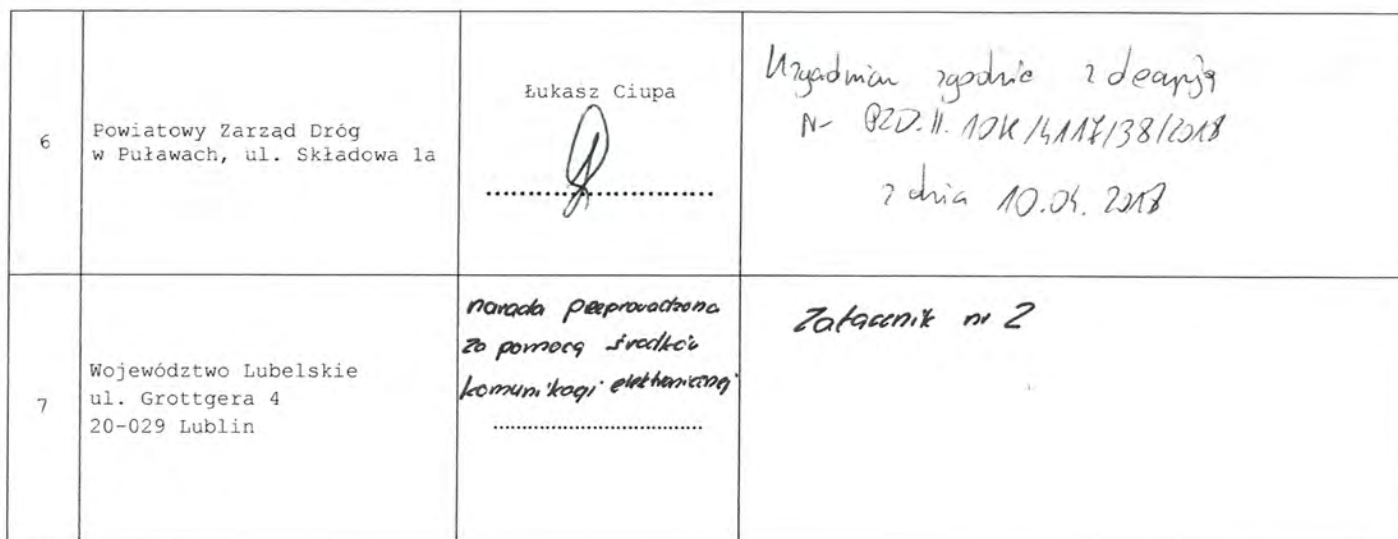 6
Powiatowy Zarząd Dróg
w Puławach, ul. Składowa 1a
Łukasz Ciupa
Uzgadniam zgodnie z decyzją
Nr PZD.II.10K/4117/38/2018
z dnia 10.04.2018
7
Województwo Lubelskie
ul. Grottgera 4
20-029 Lublin
narada przeprowadzona
za pomocą środków
komunikacji elektronicznej
Załącznik nr 2